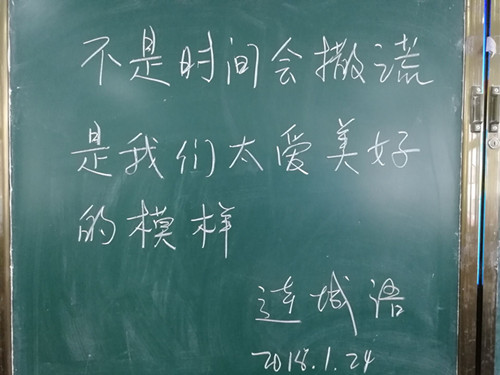 不是时间会撒谎
是我们太爱美好
的模样
连城语
2018.1.24